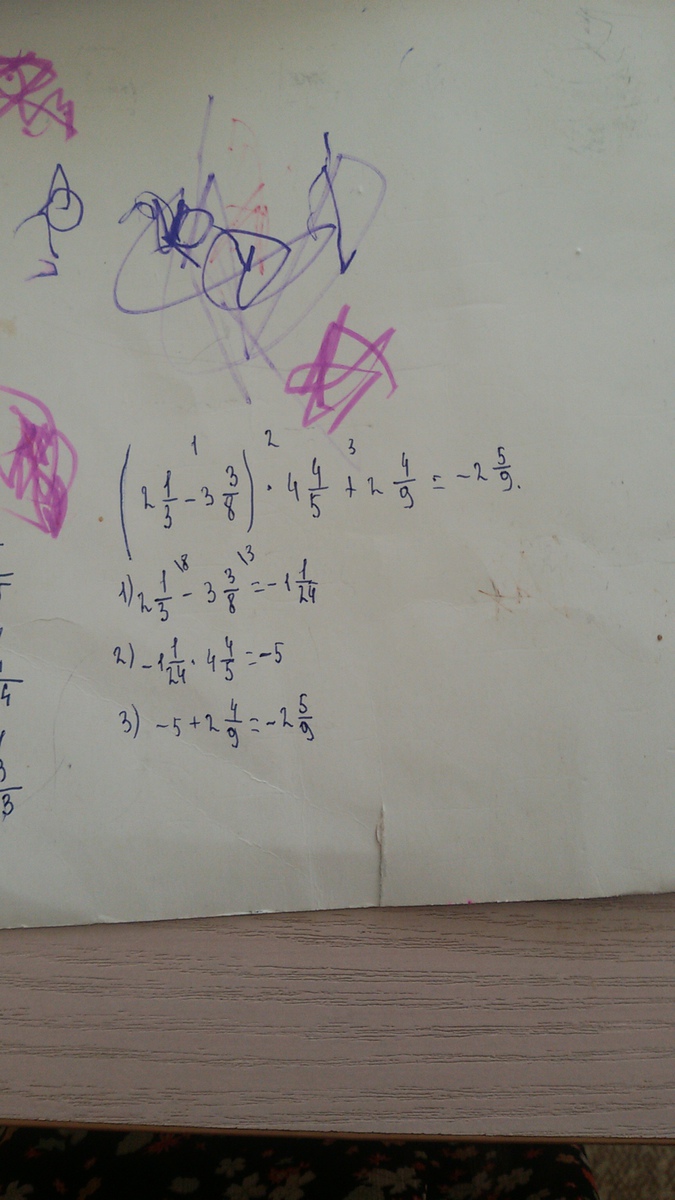 1 2 3
(2 1/3 - 3 3/8) · 4 4/5 + 2 4/9 = -2 5/9.
1) 2 1/3 \8 - 3 3/8 \3 = -1 1/24
2) -1 1/24 · 4 4/5 = -5
3) -5 + 2 4/9 = -2 5/9